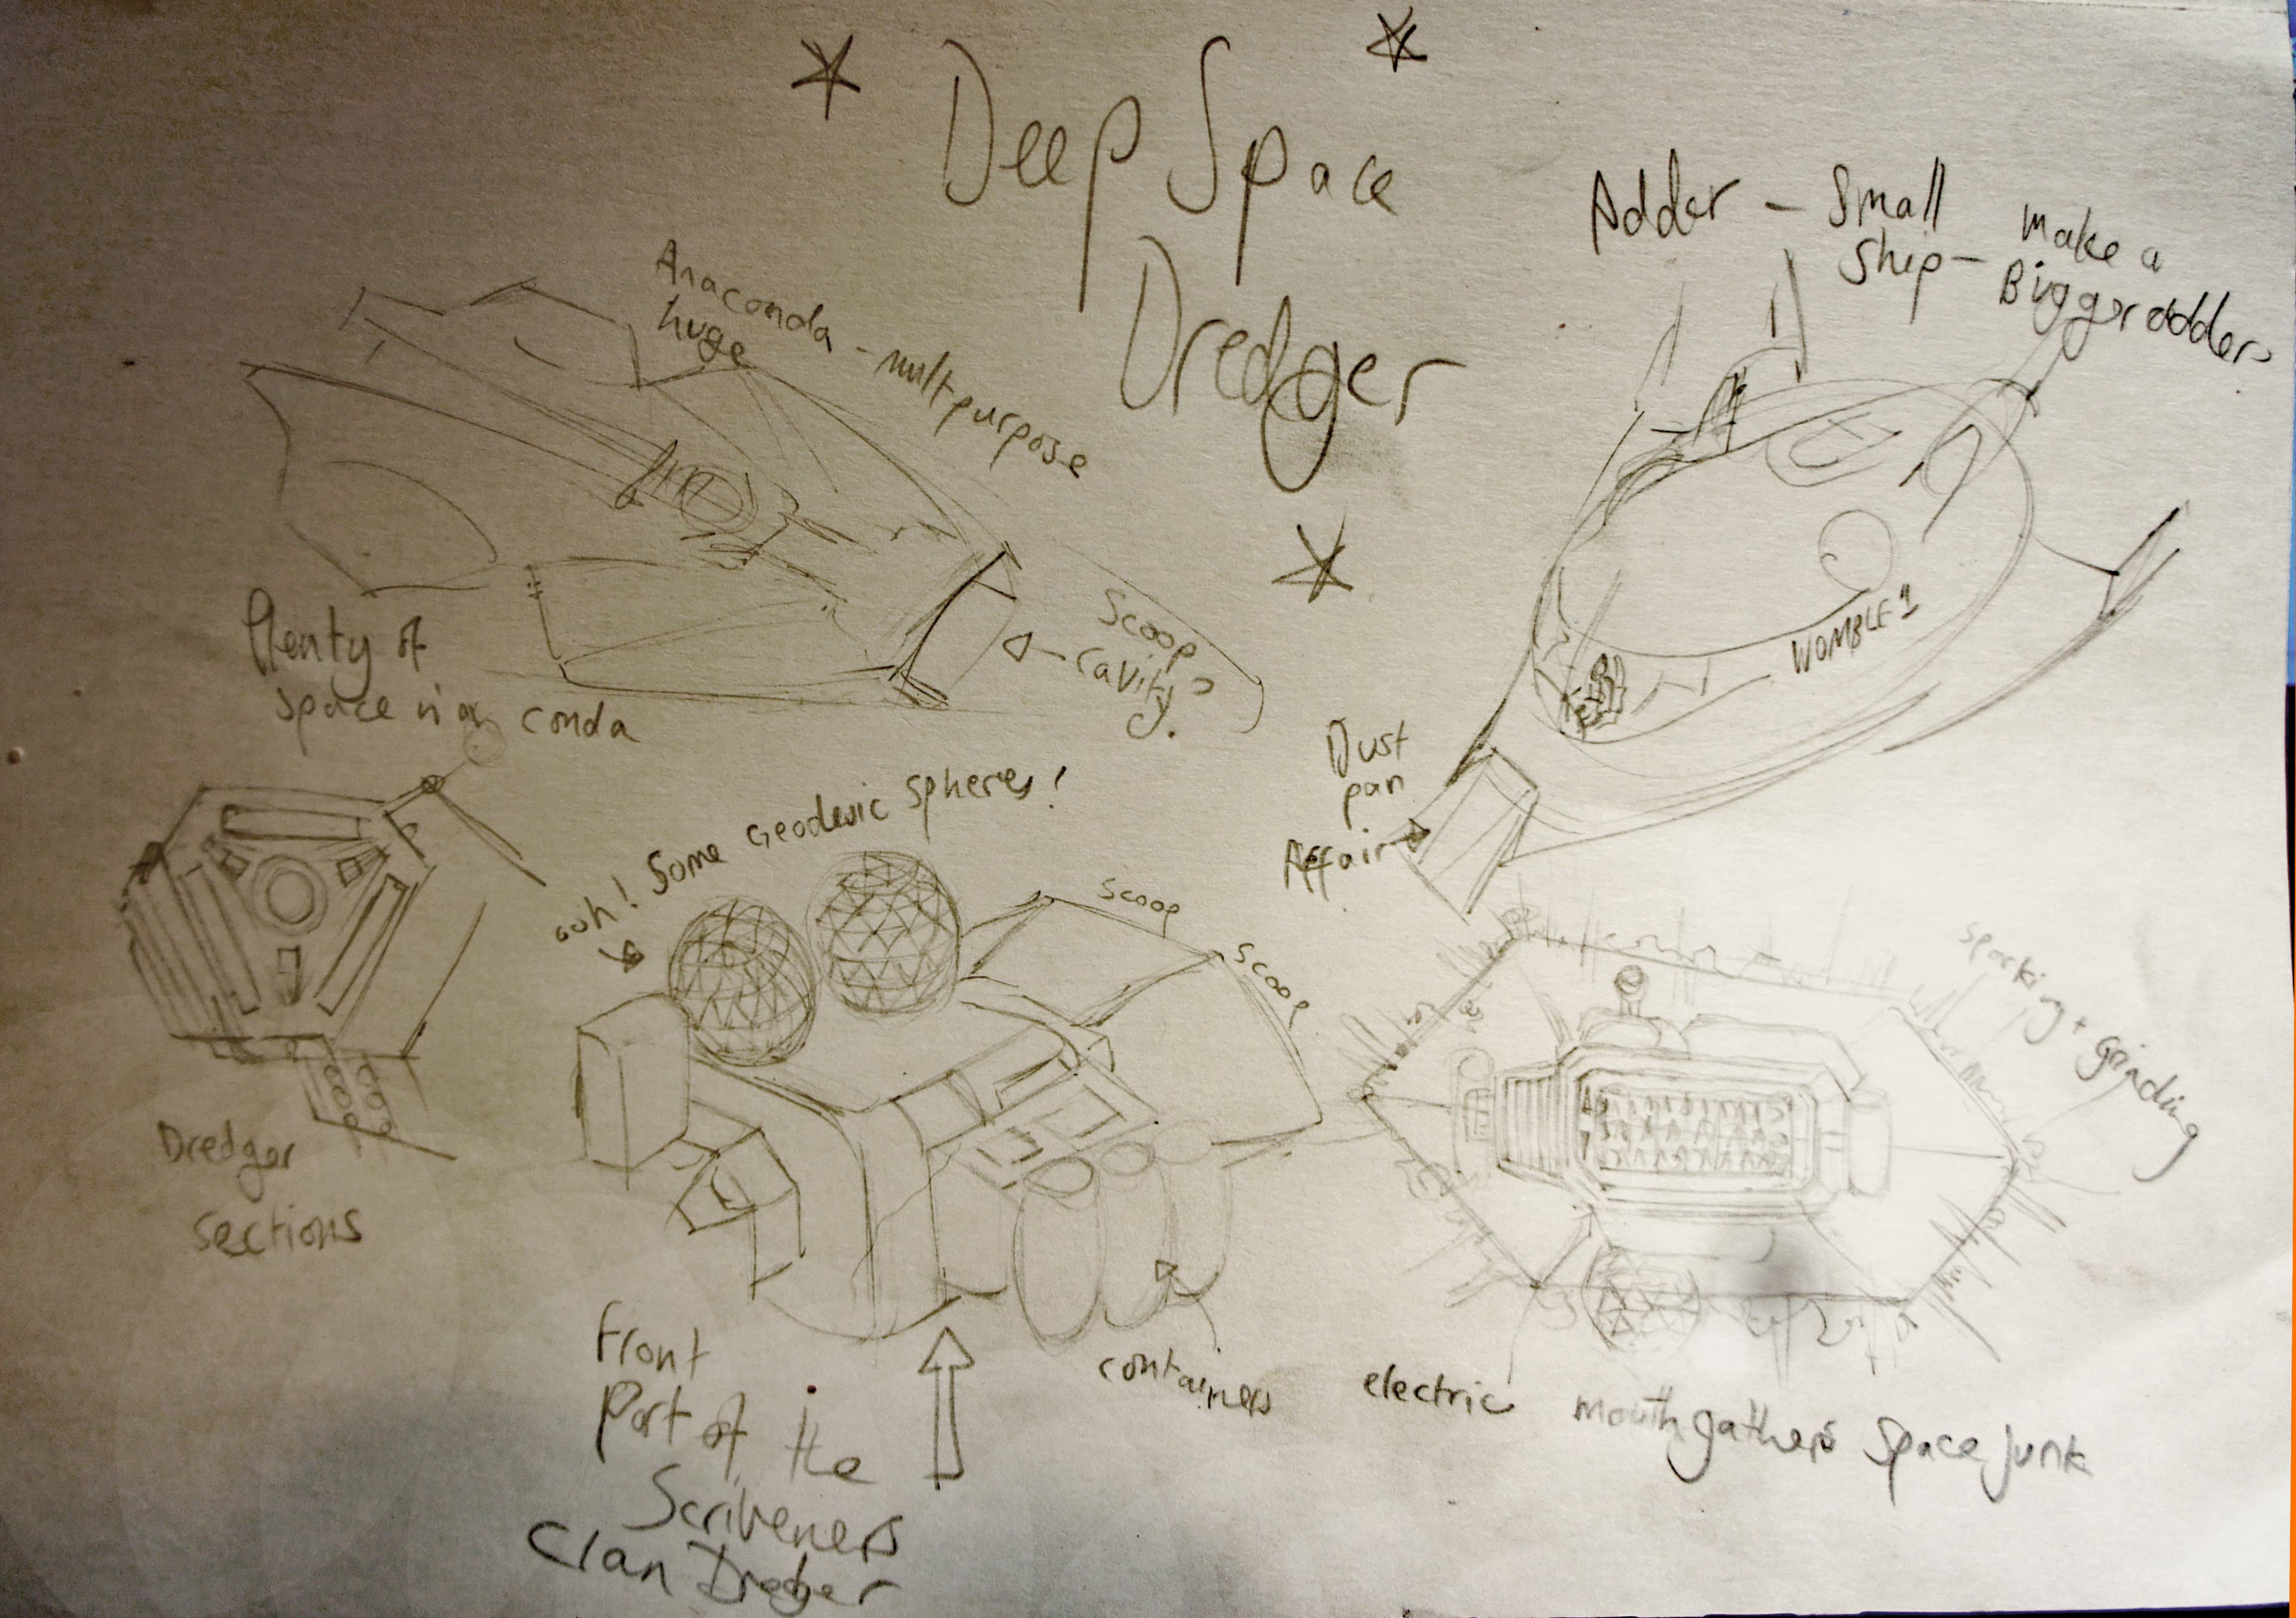 Deep Space
Dredger
Adder - Small
Ship - make a
Bigger adder
Anaconda - multpurpose
huge
Scoop
cavity?
Plenty of
space in a conda
WOMBLE 1
Dust
pan
Affair
ooh! Some Geodesic spheres!
scoop
scoop
sparking + grinding
Dredger
sections
containers
electric mouth gathers space junk
Front
Part of the
Scriveners
Clan Dredger